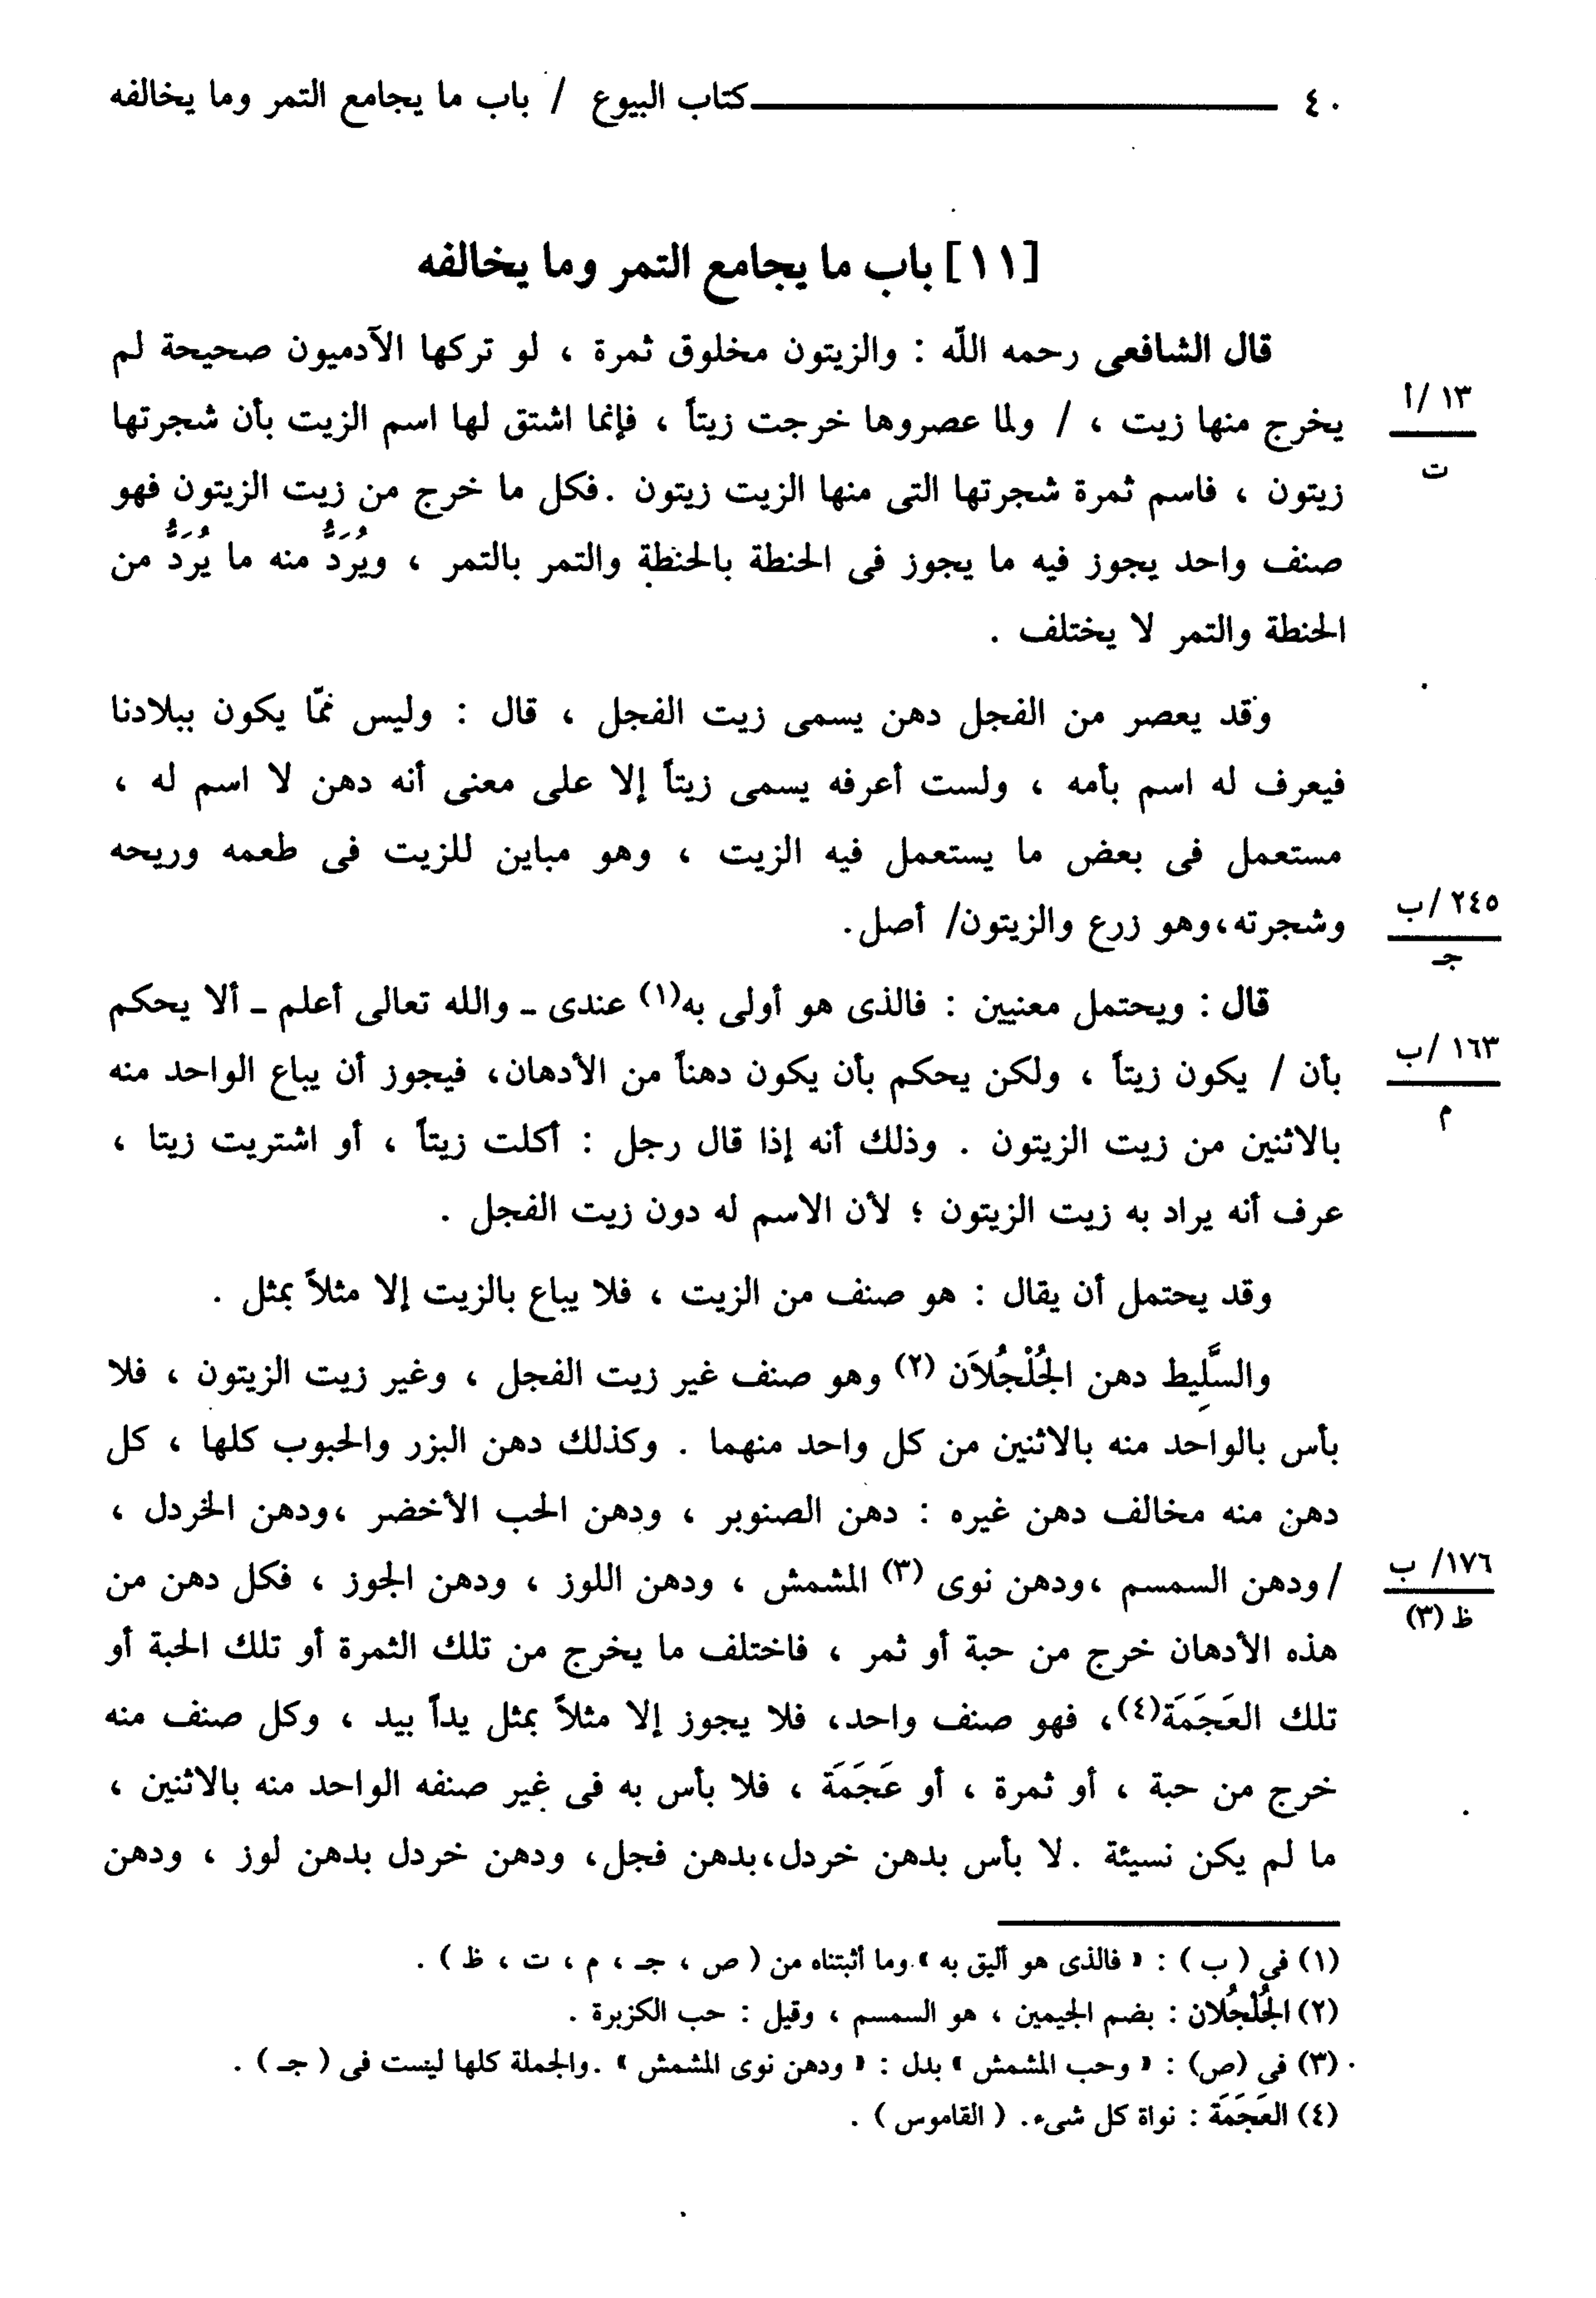 ٤٠ كتاب البيوع / باب ما يجامع التمر وما يخالفه
[١١] باب ما يجامع التمر وما يخالفه
قال الشافعى رحمه اللّه : والزيتون مخلوق ثمرة ، لو تركها الآدميون صحيحة لم
١٣/أ
يخرج منها زيت ، / ولما عصروها خرجت زيتاً ، فإنما اشتق لها اسم الزيت بأن شجرتها
ت
زيتون ، فاسم ثمرة شجرتها التى منها الزيت زيتون . فكل ما خرج من زيت الزيتون فهو
صنف واحد يجوز فيه ما يجوز فى الحنطة بالحنطة والتمر بالتمر ، ويُرَدُّ منه ما يُرَدُّ من
الحنطة والتمر لا يختلف .
وقد يعصر من الفجل دهن يسمى زيت الفجل ، قال : وليس ممَّا يكون ببلادنا
فيعرف له اسم بأمه ، ولست أعرفه يسمى زيتاً إلا على معنى أنه دهن لا اسم له ،
مستعمل فى بعض ما يستعمل فيه الزيت ، وهو مباين للزيت فى طعمه وريحه
٢٤٥/ب
وشجرته،وهو زرع والزيتون/ أصل.
جـ
قال : ويحتمل معنيين : فالذى هو أولى به(١) عندى ـ والله تعالى أعلم ـ ألا يحكم
١٦٣/ب
بأن / يكون زيتاً ، ولكن يحكم بأن يكون دهناً من الأدهان، فيجوز أن يباع الواحد منه
م
بالاثنين من زيت الزيتون . وذلك أنه إذا قال رجل : أكلت زيتاً ، أو اشتريت زيتا ،
عرف أنه يراد به زيت الزيتون ؛ لأن الاسم له دون زيت الفجل .
وقد يحتمل أن يقال : هو صنف من الزيت ، فلا يباع بالزيت إلا مثلاً بمثل .
والسَّلِيط دهن الجُلْجُلاَن (٢) وهو صنف غير زيت الفجل ، وغير زيت الزيتون ، فلا
بأس بالواحد منه بالاثنين من كل واحد منهما . وكذلك دهن البزر والحبوب كلها ، كل
دهن منه مخالف دهن غيره : دهن الصنوبر ، ودهن الحب الأخضر ،ودهن الخردل ،
١٧٦/ ب
/ ودهن السمسم ،ودهن نوى (٣) المشمش ، ودهن اللوز ، ودهن الجوز ، فكل دهن من
ظ (٣)
هذه الأدهان خرج من حبة أو ثمر ، فاختلف ما يخرج من تلك الثمرة أو تلك الحبة أو
تلك العَجَمَة(٤)، فهو صنف واحد، فلا يجوز إلا مثلاً بمثل يداً بيد ، وكل صنف منه
خرج من حبة ، أو ثمرة ، أو عَجَمَة ، فلا بأس به فى غير صنفه الواحد منه بالاثنين ،
ما لم يكن نسيئة . لا بأس بدهن خردل،بدهن فجل، ودهن خردل بدهن لوز ، ودهن
(١) فى ( ب ) : « فالذى هو أليق به ».وما أثبتناه من ( ص ، جـ ، م ، ت ، ظ ) .
(٢) الجُلْجُلان : بضم الجيمين ، هو السمسم ، وقيل : حب الكزبرة .
(٣) فى (ص) : « وحب المشمش » بدل : « ودهن نوى المشمش » .والجملة كلها ليست فى ( جـ ) .
(٤) العَجَمَة : نواة كل شىء. ( القاموس ) .